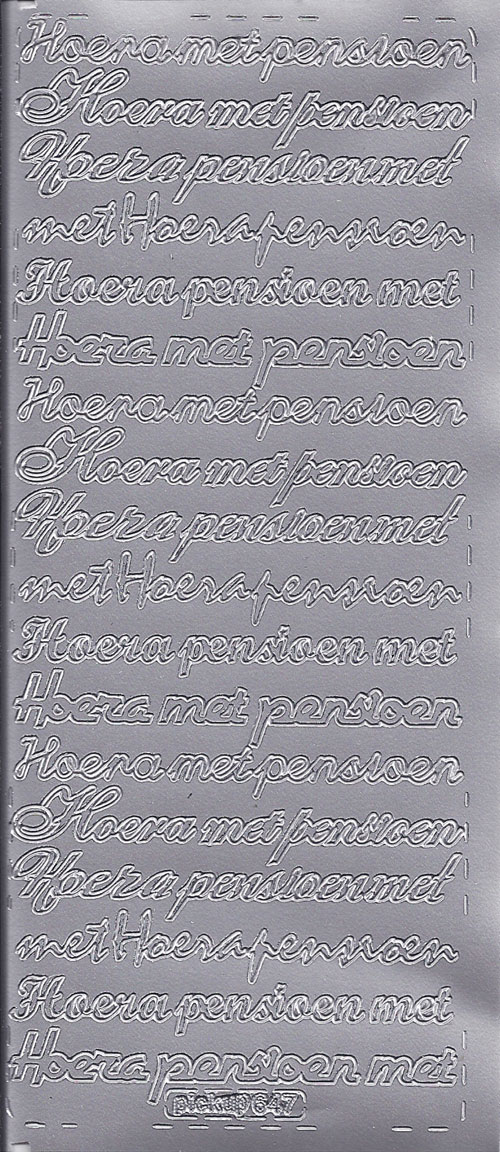 Hoera met pensioen
Hoera met pensioen
Hoera pensioen met
met Hoera pensioen
Hoera pensioen met
Hoera met pensioen
Hoera met pensioen
Hoera met pensioen
Hoera pensioen met
met Hoera pensioen
Hoera pensioen met
Hoera met pensioen
Hoera met pensioen
Hoera met pensioen
Hoera pensioen met
met Hoera pensioen
Hoera pensioen met
Hoera pensioen met
pickup 647